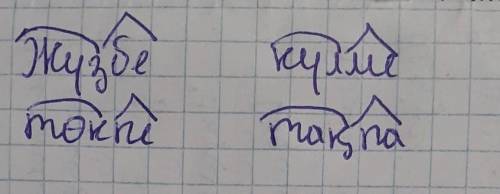 Жузбе кулме
төкпе тақпа